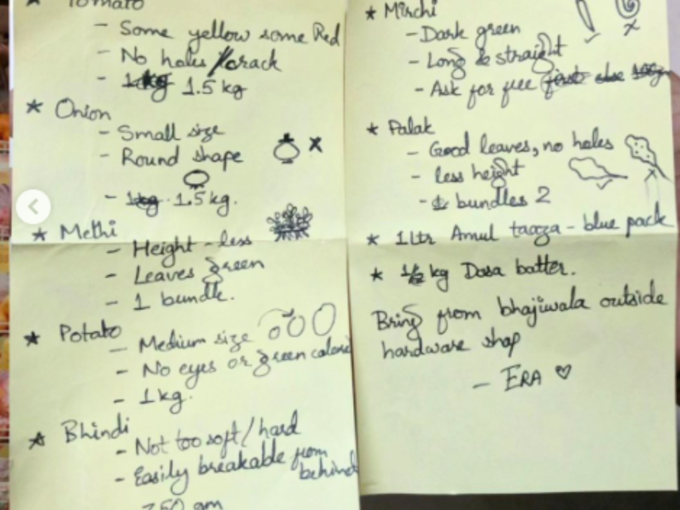 Tomato
- Some yellow some Red
- No holes / crack
- 1.5 kg
* Onion
- Small size
- Round shape
- 1.5 kg.
* Methi
- Height - less
- Leaves green
- 1 bundle.
* Potato
- Medium size
- No eyes or green
- 1 kg.
* Bhindi
- Not too soft / hard
- Easily breakable from
behind
gm
* Mirchi
- Dark green
- Long & straight
- Ask for free
* Palak
- Good leaves, no holes
- less height
- bundles 2
* 1 ltr Amul taaza - blue pack
* kg Dosa batter.
Bring from bhajiwala outside
hardware shop
- ERA ♡